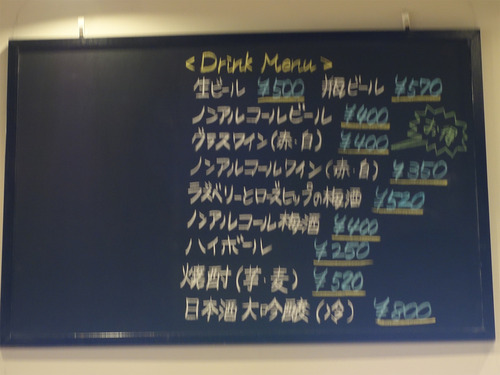 <Drink Menu>
生ビール ¥500 瓶ビール ¥570
ノンアルコールビール ¥400
グラスワイン(赤・白) ¥400 お得
ノンアルコールワイン(赤・白) ¥350
ラズベリーとローズヒップの梅酒 ¥520
ノンアルコール梅酒 ¥400
ハイボール ¥250
焼酎(芋・麦) ¥520
日本酒 大吟醸(冷) ¥800